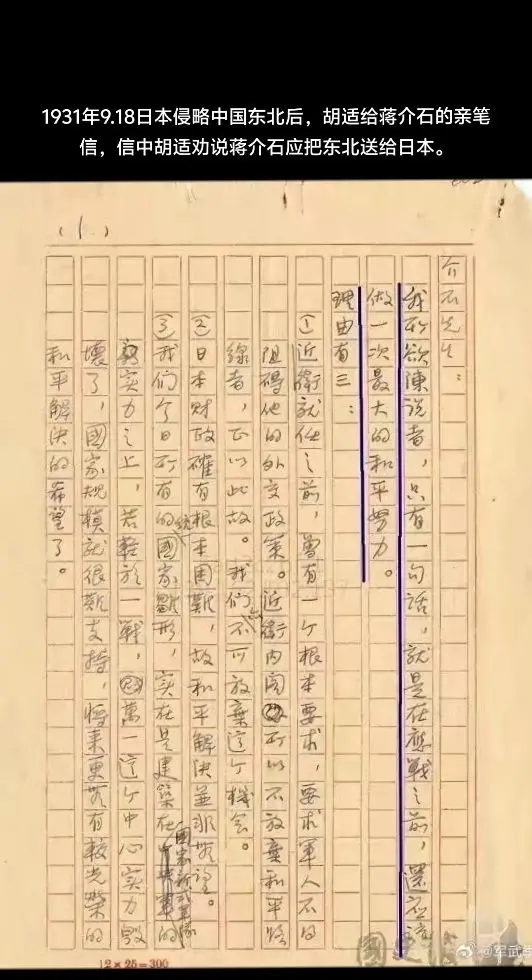 1931年9.18日本侵略中国东北后，胡适给蒋介石的亲笔
信，信中胡适劝说蒋介石应把东北送给日本。
（1）
介石先生：
我所欲陳説者，只有一句話，就是在應戰之前，還应該
做一次最大的和平努力。
理由有三：
①近衛就任之前，曾有一个根本要求，要求軍人不得
阻碍他的外交政策。近衛内閣所以不放棄和平路
線者，正以此故。我们不可放棄這个機会。
②日本財政確有根本困難，故和平解決並非無望。
③我们今日所有的統一國家雛形，实在是建築在國家新式軍隊的
实力之上，若輕於一戰，萬一這个中心实力毁
壞了，國家規模就很難支持，將来更無有較光榮的
和平解決的希望了。
12×25=300
國史館
@军武